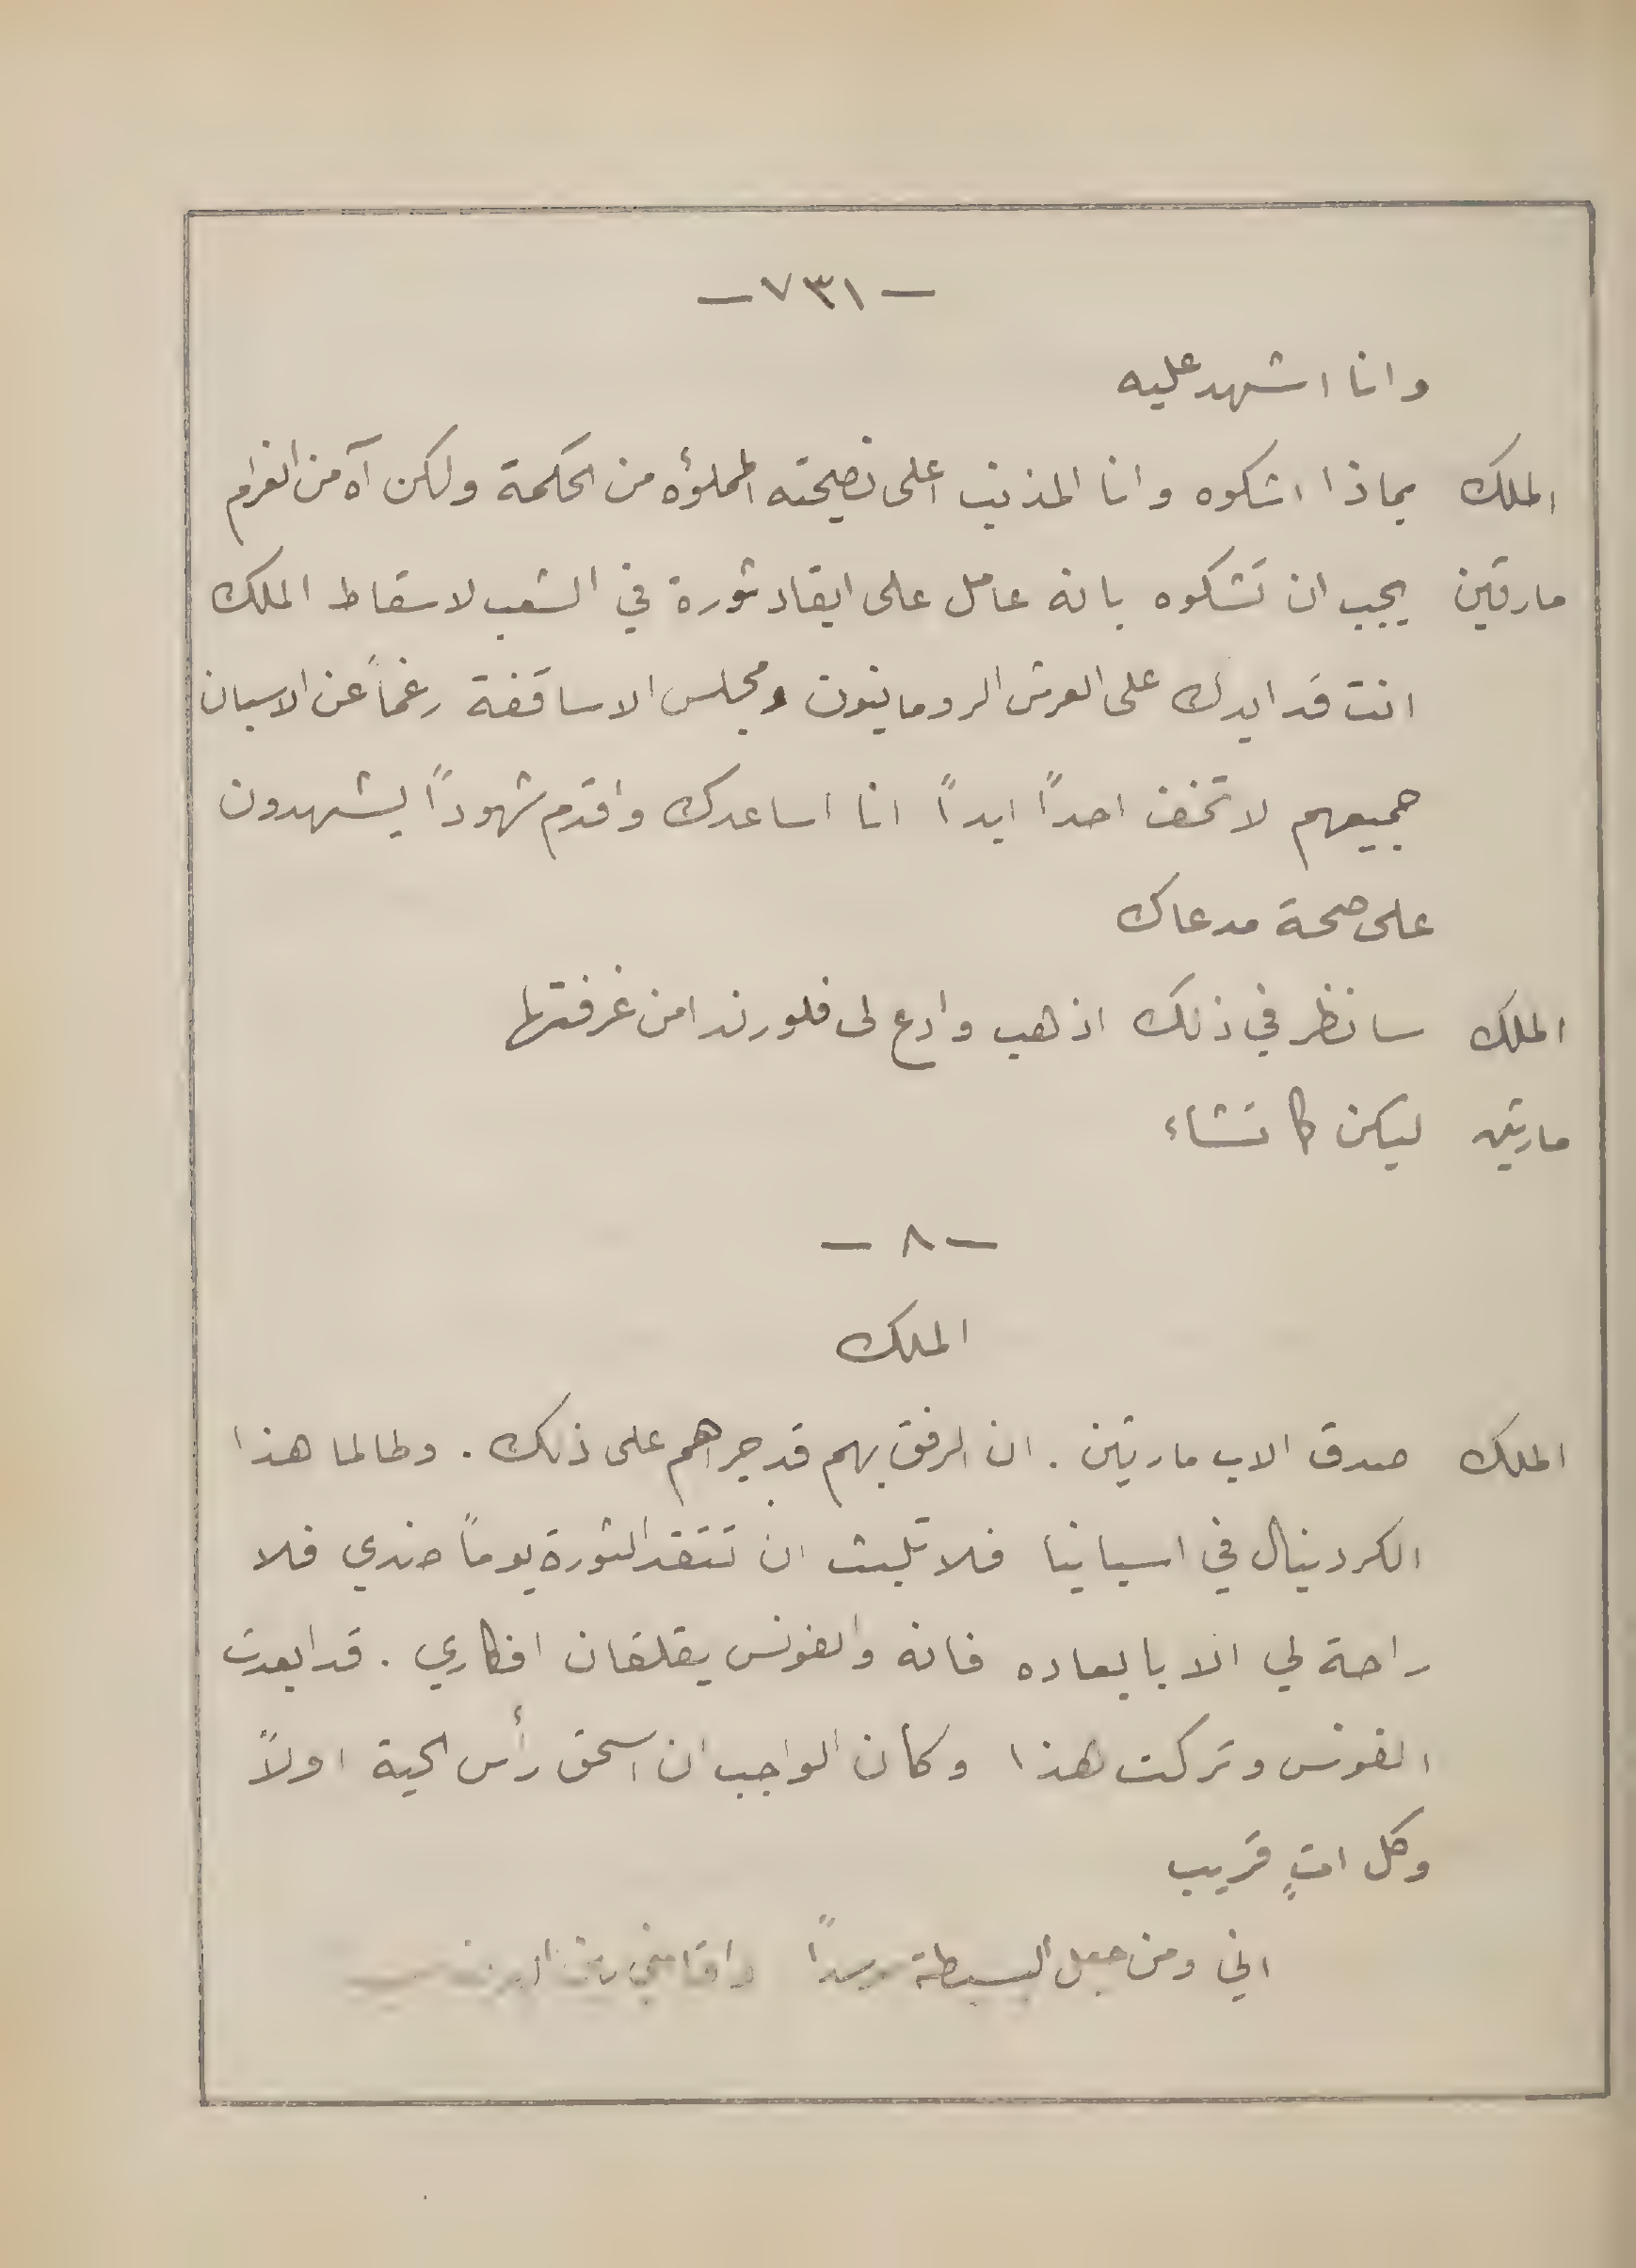 — ٧٣١ —
وانا اشهد عليه
الملك بماذا اشكوه وانا المذنب اعلى نصيحته المملؤه من الحكمة ولكن آه من الغرام
مارتين يجب ان تشكوه بانه عامل على ايقاد ثورة في الشعب لاسقاط الملك
انت قد ايدك على العرش الرومانيون ومجلس الاساقفة رغماً عن الاسبان
جميعهم لا تخف احداً ابداً انا اساعدك واقدم شهوداً يشهدون
على صحة مدعاك
الملك سانظر في ذلك اذهب وادع لى فلورندا من غرفتها
مارتين ليكن كما تشاء
— ٨ —
الملك
الملك صدق الاب مارتين . ان الرفق بهم قد جراهم على ذلك . وطالما هذا
الكردينال في اسبانيا فلا تلبث ان تتقد الثورة يوماً ضدي فلا
راحة لي الا بابعاده فانه والفونس يقلقان افكاري . قد ابعدت
الفونس وتركت هذا وكان الواجب ان اسحق رأس الحية اولاً
وكل اتٍ قريب
اني ومن جعل البسيطة